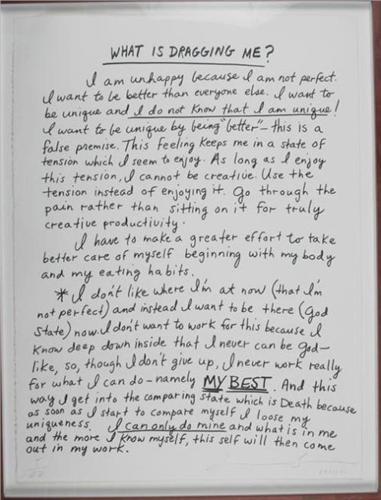 WHAT IS DRAGGING ME?
I am unhappy because I am not perfect.
I want to be better than everyone else. I want to
be unique and I do not know that I am unique!
I want to be unique by being "better" – this is a
false premise. This feeling keeps me in a state of
tension which I seem to enjoy. As long as I enjoy
this tension, I cannot be creative. Use the
tension instead of enjoying it. Go through the
pain rather than sitting on it for truly
creative productivity.
I have to make a greater effort to take
better care of myself beginning with my body
and my eating habits.
* I don't like where I'm at now (that I'm
not perfect) and instead I want to be there (God
State) now. I don't want to work for this because I
know deep down inside that I never can be God-
like, so, though I don't give up, I never work really
for what I can do – namely MY BEST. And this
way I get into the comparing State which is Death because
as soon as I start to compare myself I loose my
uniqueness. I can only do mine and what is in me
and the more I know myself, this self will then come
out in my work.